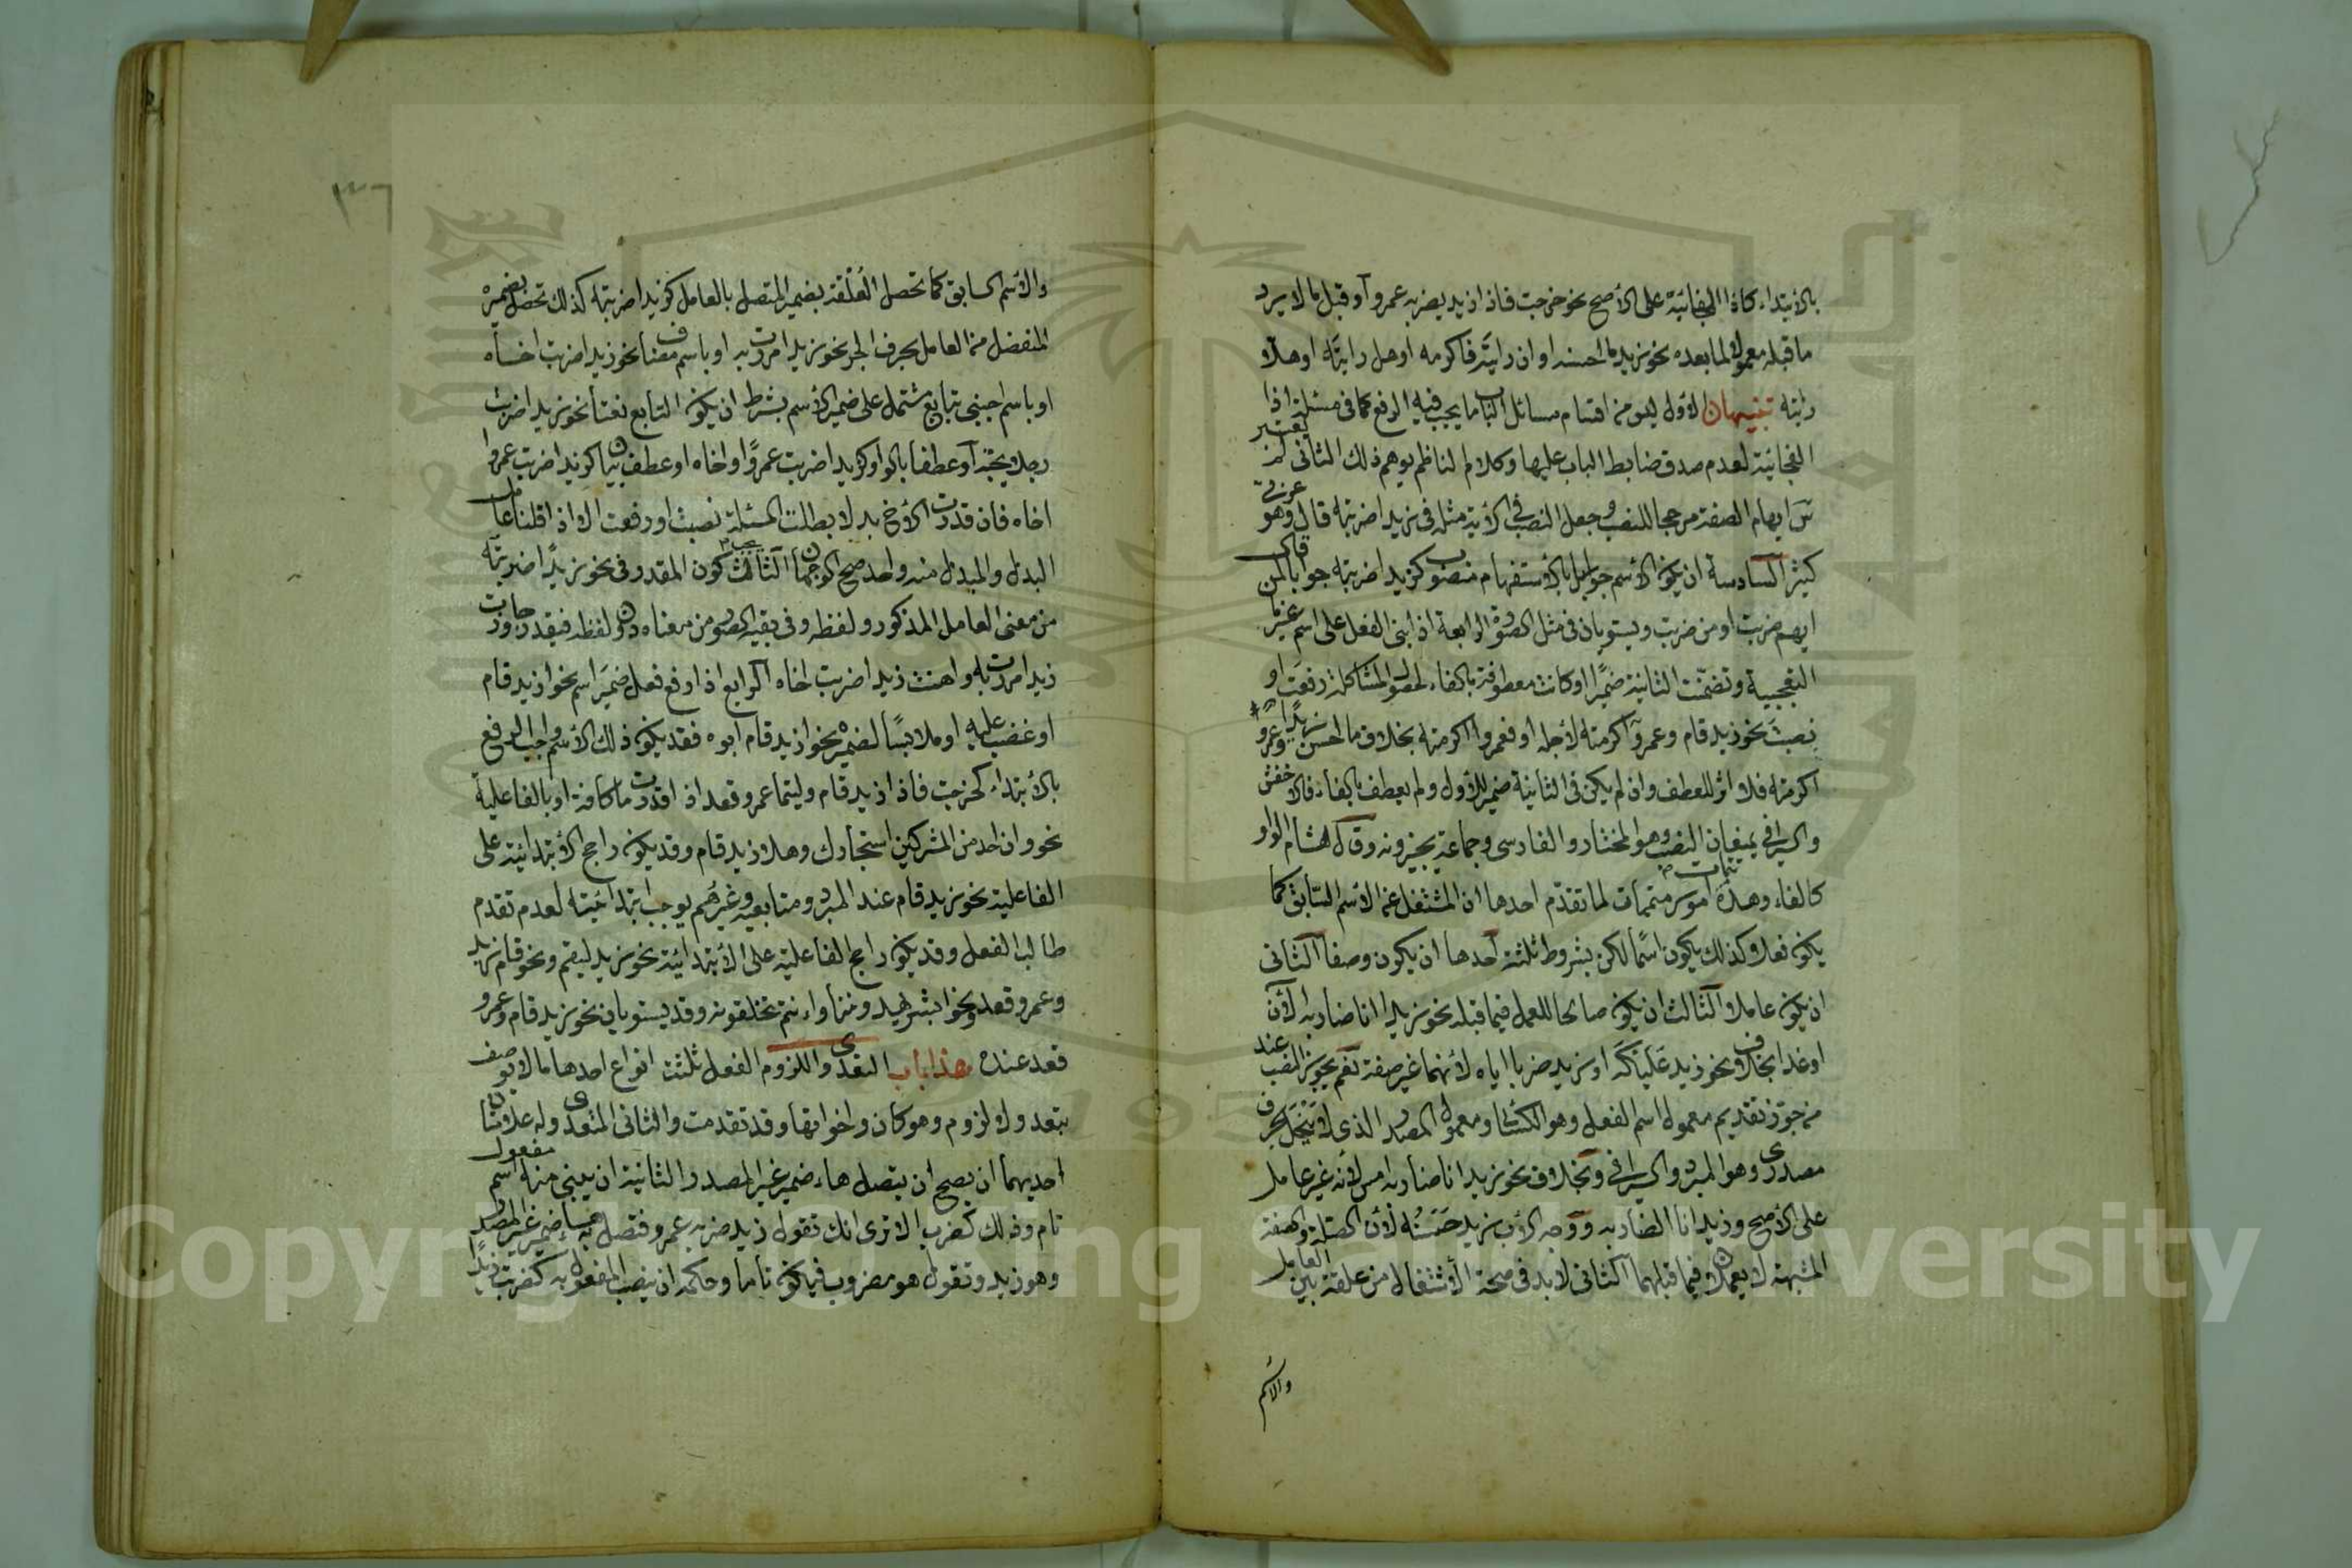 بالابتداء كاذا الفجائية على الأصح نحو خرجت فاذا زيد يضربه عمرو أو قبل ما لا يرد
ما قبله معمولا لما بعده نحو زيد ما احسنه او ان رايته فاكرمه او هل رايته او هلا
رايته تنبيهان الأول ليس من اقسام مسائل الباب ما يجب فيه الرفع كما في مسئلة اذا
الفجائية لعدم صدق ضابط الباب عليها وكلام الناظم يوهم ذلك الثاني لم يعتبر
س ايهام الصفة مرجحا للنصب وجعل النصب في الأية مثله في زيدا ضربته قال وهو عربي
كثير السادسة ان يكون الأسم جوابا بالأستفهام منصوب كزيدا ضربته جوابا لمن قال
ايهم ضربت او من ضربت ويستويان في مثل الصورة الرابعة اذا بنى الفعل على اسم غير ما
التعجبية وتضمنت الثانية ضميرا او كانت معطوفة بالفاء لحصول المشاكلة رفعت او
نصبت نحو زيد قام وعمروا اكرمته لأجله او فعمروا اكرمته بخلاف ما احسن زيدا وعمرو
اكرمته فلا اثر للعطف وان لم يكن في الثانية ضمير للأول ولم يعطف بالفاء فالاخفش
والسيرافي يمنعان النصب وهو المختار والفارسي وجماعة يجيزونه وقال هشام الواو
كالفاء وهذه امور متممات لما تقدم احدها ان المشتغل عن الأسم السابق كما
يكون فعلا كذلك يكون اسما لكن بشروط ثلثة احدها ان يكون وصفا الثاني
ان يكون عاملا الثالث ان يكون صالحا للعمل فيما قبله نحو زيدا انا ضاربه الآن
او غدا بخلاف نحو زيد عليكه او زيد ضربا اياه لأنهما غير صفة نعم يجوز النصب عند
من جوز تقديم معمول اسم الفعل وهو الكسائي ومعمول المصدر الذي لا ينحل بحرف
مصدري وهو المبرد والسيرافي وبخلاف نحو زيد انا ضاربه امس لأنه غير عامل
على الأصح وزيد انا الضاربه ووجه الأب زيد حسنه لأن الصلة والصفة
المشبهة لا يعملان فيما قبلهما الثاني لا بد في صحة الأشتغال من علقة بين العامل
والاسم
٣٦
والأسم السابق كما تحصل العلقة بضمير المتصل بالعامل كزيدا ضربته كذلك تحصل بضميره
المنفصل من العامل بحرف الجر نحو زيدا مررت به او باسم مضاف نحو زيدا ضربت اخاه
او باسم اجنبي بتابع مشتمل على ضمير الأسم بشرط ان يكون التابع نعتا نحو زيدا ضربت
رجلا يحبه أو عطفا بالواو كزيدا ضربت عمرا واخاه او عطف بيان كزيدا ضربت عمروا
اخاه فان قدرت الأخ بدلا بطلت المسئلة نصبت او رفعت الا اذا قلنا عامل
البدل والمبدل منه واحد صح الوجهان الثالث يجب كون المقدر في نحو زيدا ضربته
من معنى العامل المذكور ولفظه وفي بقية الصور من معناه دون لفظه فيقدر جاوزت
زيدا مررت به واهنت زيدا ضربت اخاه الرابع اذا رفع فعل ضمير اسم نحو زيد قام
او غضب عليه او ملابسا لضميره نحو زيد قام ابوه فقد يكون ذلك الأسم واجب الرفع
بالأبتداء كخرجت فاذا زيد قام وليتما عمرو قعد اذا قدرت ما كافة او بالفاعلية
نحو وان احد من المشركين استجارك وهلا زيد قام وقد يكون راجح الأبتدائية على
الفاعلية نحو زيد قام عند المبرد ومتابعيه وغيرهم يوجب ابتدائيته لعدم تقدم
طالب الفعل وقد يكون راجح الفاعلية على الأبتدائية نحو زيد ليقم ونحو قام زيد
وعمرو قعد ونحو ابشر يهدوننا واءنتم تخلقونه وقد يستويان نحو زيد قام وعمرو
قعد عنده هذا باب التعدي واللزوم الفعل ثلثة انواع احدها ما لا يوصف
بتعد ولا لزوم وهو كان واخواتها وقد تقدمت والثاني المتعدي وله علامتان
احديهما ان يصح ان يتصل هاء ضمير غير المصدر الثانية ان يبنى منه اسم مفعول
تام وذلك كضرب الا ترى انك تقول زيد ضربه عمرو فتصل به هاء ضمير غير المصدر
وهو زيد وتقول هو مضروب فيكون تاما وحكمه ان ينصب المفعول به كضربت زيدا
Copyright © King Saud University